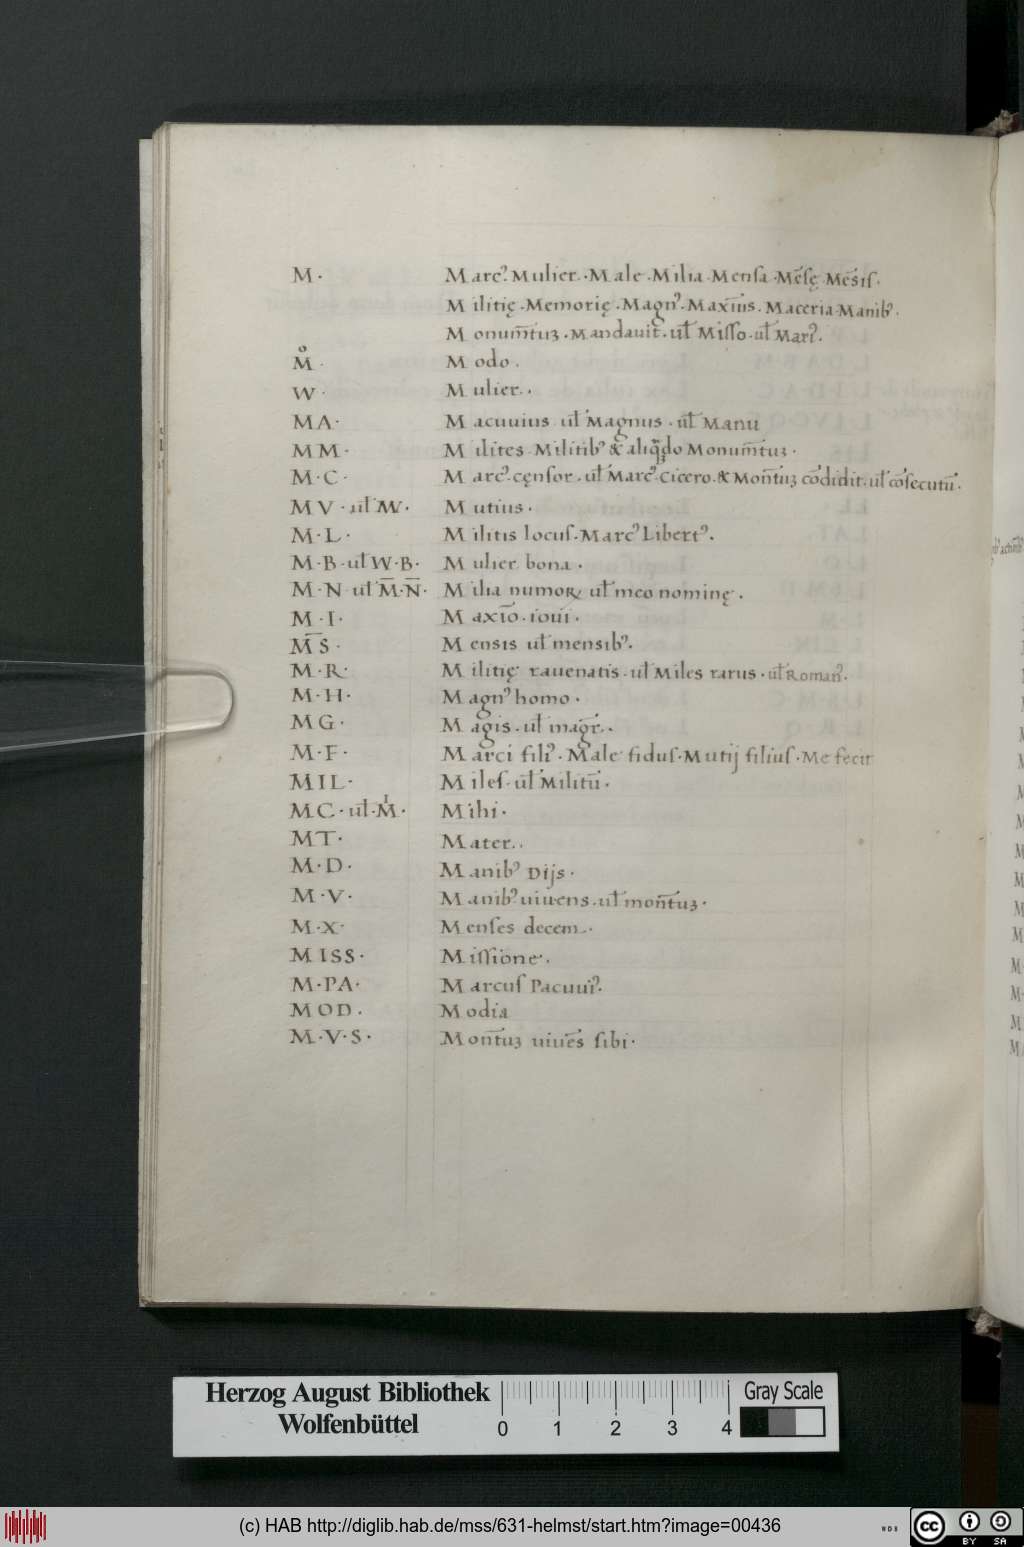 M · Marcꝰ. Mulier · Male · Milia · Mensa · Mēsę · Mēsiſ ·
Militię · Memorię · Magnꝰ · Maxīus · Maceria · Manibꝰ ·
Monum̄tuꝫ · Mandauit · ul̄ Miſſo · ul̄ Marꝰ.
M̊ · Modo ·
W · Mulier ·
MA · Macuuius ul̄ Magnus · ul̄ Manu
MM · Milites Militibꝰ & aliq̄do Monum̄tuꝫ ·
M · C · Marcꝰ. cęnsor · ul̄ Marcꝰ. Cicero · & Mon̄tuꝫ cōdidit · ul̄ cōsecutū ·
MV · ul̄ W · Mutius ·
M · L · Militis locuſ · Marcꝰ Libertꝰ.
M · B · ul̄ W · B · Mulier bona ·
M · N ul̄ M̄ · N̄ · Milia numoꝝ ul̄ meo nominę ·
M · I · Maxīo · ioui ·
M̄S̄ · Mensis ul̄ mensibꝰ.
M · R · Militię rauenatis · ul̄ Miles rarus · ul̄ Romanꝰ.
M · H · Magnꝰ homo ·
MG · Magis · ul̄ magr̄ ·
M · F · Marci filiꝰ · Male fiduſ · Mutij filiuſ · Me fecit
MIL · Mileſ · ul̄ Militū ·
MC · ul̄ · Mͥ · Mihi ·
MT · Mater ·
M · D · Manibꝰ Dijs ·
M · V · Manibꝰ uiuens · ul̄ mon̄tuꝫ ·
M · X · Menſes decem ·
MISS · Miſſione ·
M · PA · Marcuſ Pacuuiꝰ.
MOD · Modia
M · V · S · Mon̄tuꝫ uiuēs ſibi ·
Herzog August Bibliothek
Wolfenbüttel
0 1 2 3 4
Gray Scale
(c) HAB http://diglib.hab.de/mss/631-helmst/start.htm?image=00436
WDB
cc BY SA